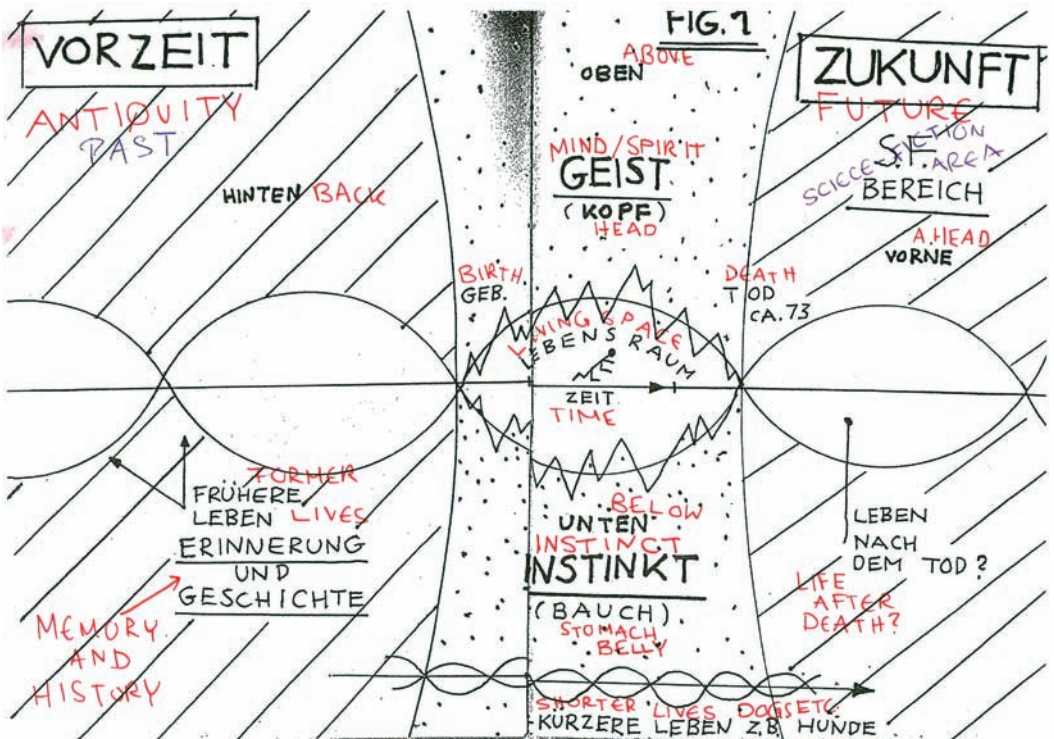 VORZEIT
ANTIQUITY
PAST
HINTEN BACK
FIG. 1
ABOVE
OBEN
MIND/SPIRIT
GEIST
(KOPF)
HEAD
ZUKUNFT
FUTURE
S.F.
SCIECE-FICTION
AREA
BEREICH
AHEAD
VORNE
BIRTH
GEB.
DEATH
TOD
CA. 73
LIVING SPACE
LEBENSRAUM
ZEIT
TIME
FORMER
FRÜHERE
LEBEN LIVES
ERINNERUNG
UND
GESCHICHTE
MEMORY
AND
HISTORY
BELOW
UNTEN
INSTINCT
INSTINKT
(BAUCH)
STOMACH
BELLY
LEBEN
NACH
DEM TOD?
LIFE
AFTER
DEATH?
SHORTER LIVES DOGS ETC
KÜRZERE LEBEN Z.B. HUNDE